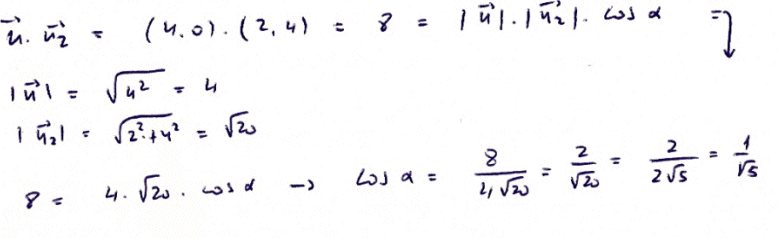 u⃗ · u⃗₂ = (4,0) · (2,4) = 8 = |u⃗| · |u⃗₂| · cos α ⇒
|u⃗| = √4² = 4
|u⃗₂| = √2²+4² = √20
8 = 4 · √20 · cos α → cos α = 8/4√20 = 2/√20 = 2/2√5 = 1/√5